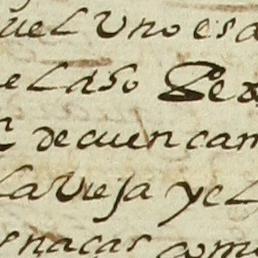 uel Uno esa
e Laso Pe
decuencam
La Vieja y el
snacas com